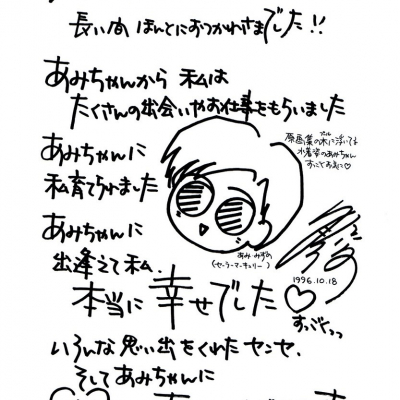 長い間 ほんとにおつかれさまでした!!
あみちゃんから 私は
たくさんの出会いやお仕事をもらいました
原画集の プール に浮いてる
水着姿のあみちゃん
すっごくお気に♡
あみちゃんに
私育てられました
あみ・みずの
(セーラーマーキュリー)
あみちゃんに
出逢えて私、
本当に 幸せでした♡
1996.10.18
すっごくっっ
いろんな思い出をくれたセンセ、
そしてあみちゃんに